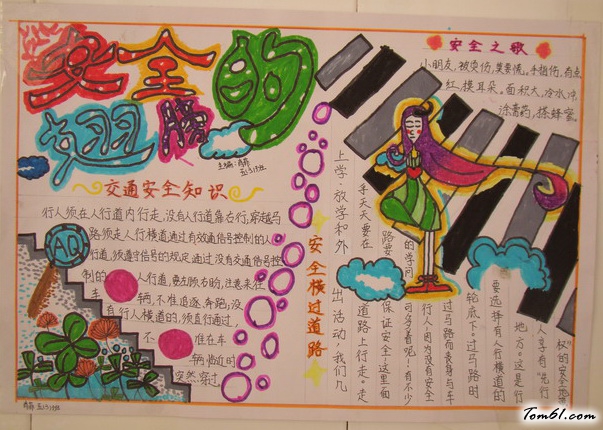 安全的
翅膀
主编:
五(3)班
交通安全知识
行人须在人行道内行走,没有人行道靠右行,穿越马
路须走人行横道通过有效通信号控制的人
行道,须遵守信号的规定通过没有交通信号控
制的 人行道,要左顾右盼,注意来往
车 辆,不准追逐,奔跑;没
有人行横道的,须直行通过,
不 准在车
辆临近时
突然穿过
AD
五(3)班
安全之歌
小朋友,被烫伤,莫要慌。手指伤,有点
红,摸耳朵。面积大,冷水冲
涂膏药,搽蜂蜜。
安全横过道路
上学、放学和外
出活动,我们几
乎天天要在
道路上行走。走
路要
保证安全,这里面
的学问
可多着呢!有不少
行人,因为没有安全
过马路而丧身与车
轮底下。过马路时
要选择有人行横道的
地方。这是行
人享有“先行
权”的安全
Tom61.com